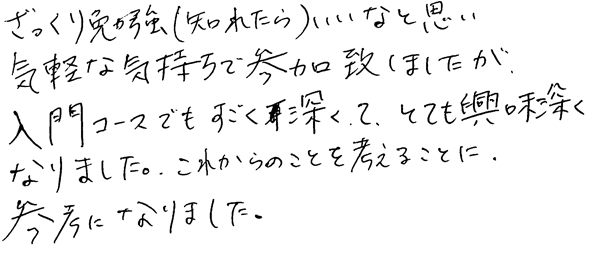 ざっくり勉強(知れたら)いいなと思い
気軽な気持ちで参加致しましたが、
入門コースでもすごく深くて、とても興味深く
なりました。これからのことを考えることに、
参考になりました。